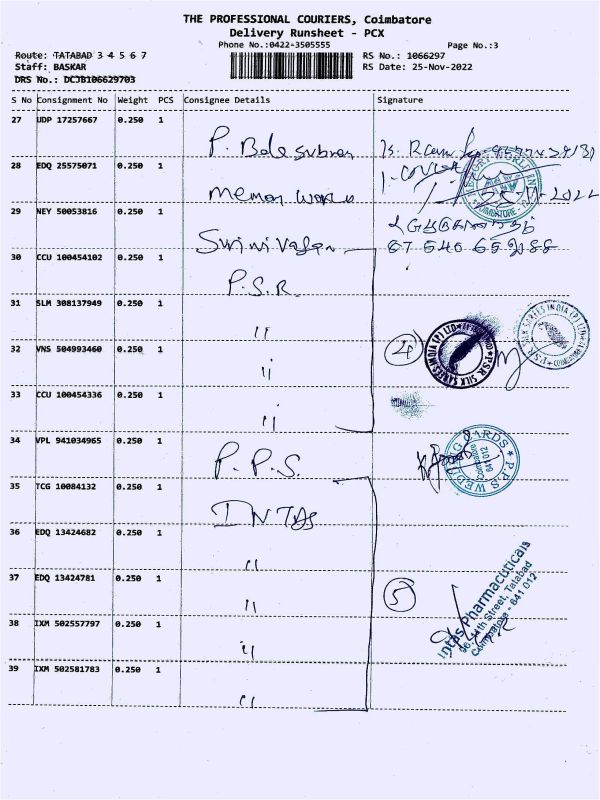 THE PROFESSIONAL COURIERS, Coimbatore
Delivery Runsheet - PCX
Phone No.:0422-3505555
Page No.:3
Route: TATABAD 3 4 5 6 7
RS No.: 1066297
Staff: BASKAR
RS Date: 25-Nov-2022
DRS No.: DCJB106629703
S No Consignment No Weight PCS Consignee Details Signature
27 UDP 17257667 0.250 1
P. Bala subran
28 EDQ 25575071 0.250 1
memory world
25-11-2022
COIMBATORE
29 NEY 50053816 0.250 1
Srinivasan
30 CCU 100454102 0.250 1
P.S.R.
31 SLM 308137949 0.250 1
"
32 VNS 504993460 0.250 1
"
4
P.S.R. SILK SAREES INDIA (P) LTD
P.S.R. SILK SAREES INDIA (P) LTD
33 CCU 100454336 0.250 1
"
34 VPL 941034965 0.250 1
P.P.S.
P.P.S WEDDING CARDS
Coimbatore
641 012
35 TCG 10084132 0.250 1
INTAS
36 EDQ 13424682 0.250 1
"
37 EDQ 13424781 0.250 1
"
5
Intas Pharmacuticals
96, 4th Street, Tatabad
Coimbatore - 641 012
38 IXM 502557797 0.250 1
"
39 IXM 502581783 0.250 1
"